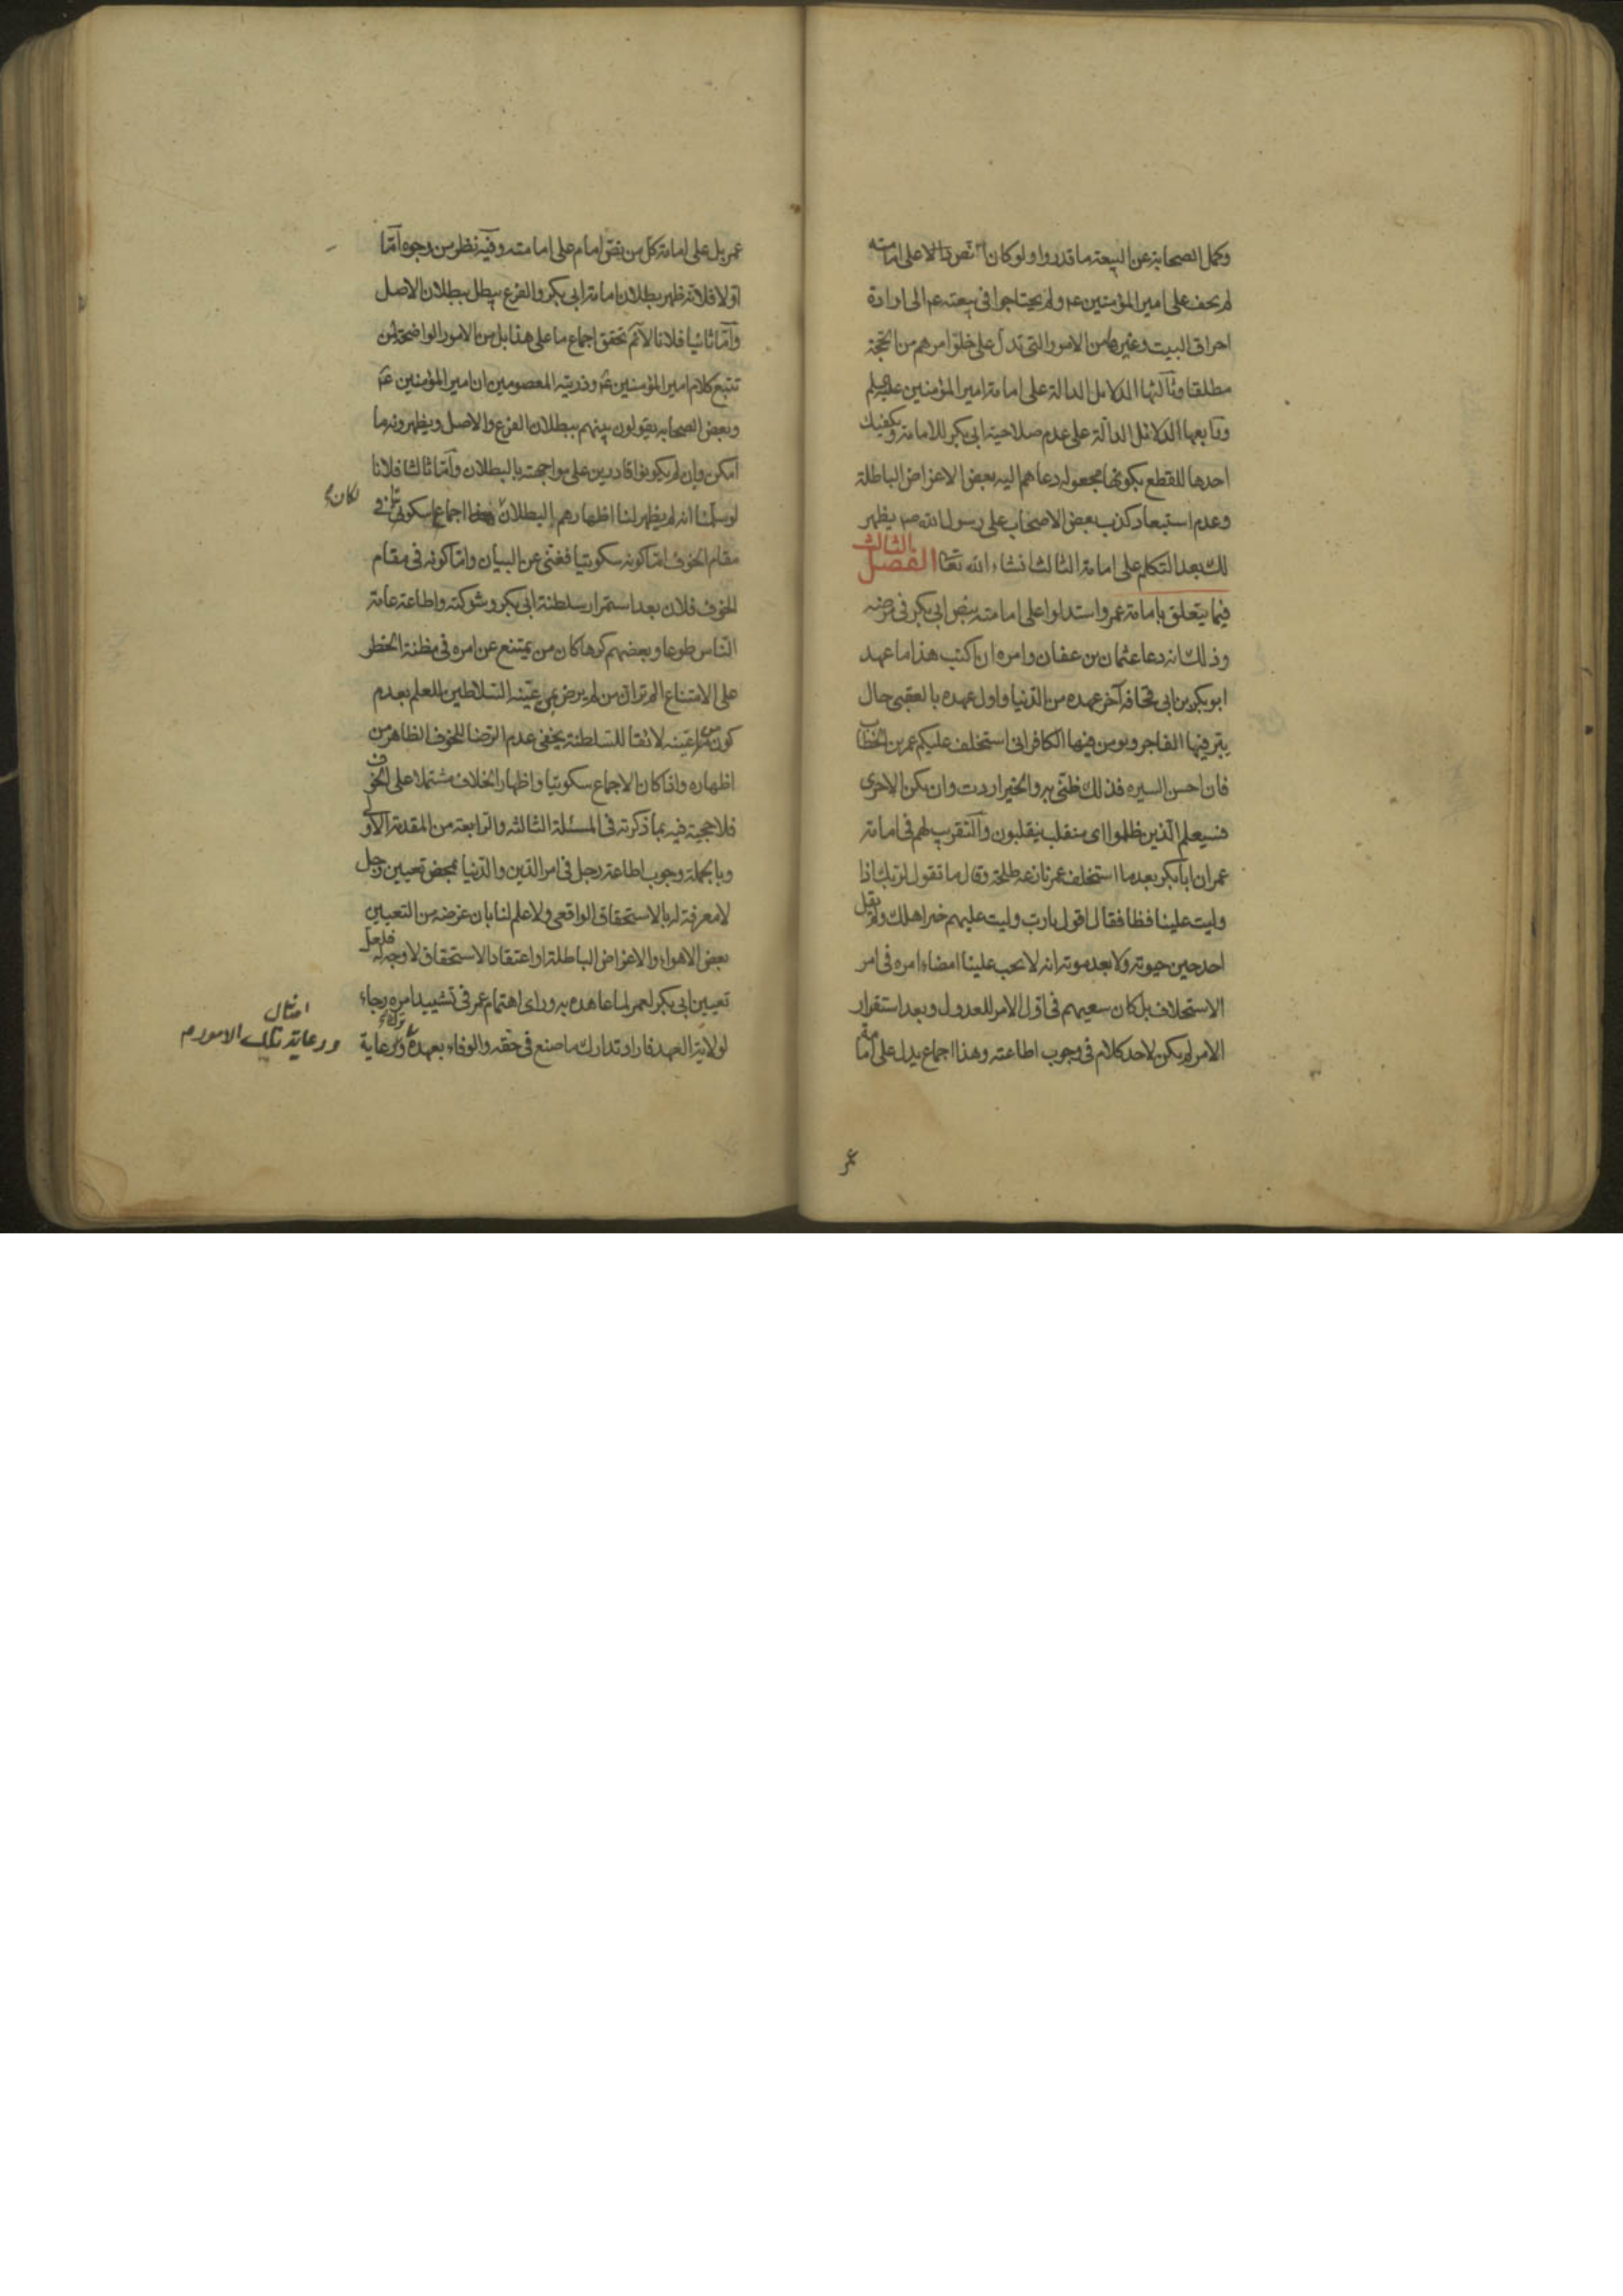 وكمل الصحابة عن البيعة ما قدروا ولو كان نص دالا على امامته
لم يخف على امير المؤمنين عم ولم يحتاجوا فى بيعته عم الى ارادة
احراق البيت وغيرها من الامور التى تدل على خلوّ امرهم من الحجة
مطلقا وثالثها الدلايل الدالة على امامة امير المؤمنين عليه السلم
ورابعها الدلائل الدالة على عدم صلاحية ابى بكر للامامة ويكفيك
احدها للقطع بكونها مجعولة دعاهم اليه بعض الاغراض الباطلة
وعدم استبعاد كذب بعض الاصحاب على رسول الله صم يظهر
لك بعد التكلم على امامة الثالث انشاء الله تعا الفصل الثالث
فيما يتعلق بامامة عمر واستدلوا على امامته بنص ابى بكر فى مرضه
وذلك انه دعا عثمان بن عفان وامره ان اكتب هذا ما عهد
ابو بكر بن ابى قحافة آخر عهده من الدنيا واول عهده بالعقبى حال
يبر فيها الفاجر ويومن فيها الكافر انى استخلف عليكم عمر بن الخطاب
فان احسن السيره فذلك ظنى به والخير اردت وان يكن الاخرى
فسيعلم الذين ظلموا اى منقلب ينقلبون والتقريب لهم فى امامة
عمر ان ابا بكر بعد ما استخلف عمر نازعه طلحة وقال ما تقول لربك اذا
وليت علينا فظا فقال اقول يا رب وليت عليهم خير اهلك ولم يقل
احد حين حيوته ولا بعد موته انه لا يجب علينا امضاء امره فى امر
الاستخلاف بل كان سعيهم فى اول الامر للعدول وبعد استقرار
الامر لم يكن لاحد كلام فى وجوب اطاعته وهذا اجماع يدل على امامة
عمر
عمر بل على امامة كل من نص امام على امامته وفيه نظر من وجوه امّا
اولا فلانه ظهر بطلان امامة ابى بكر والفرع يبطل ببطلان الاصل
وامّا ثانيا فلانا لا نم تحقق اجماع ما على هذا بل من الامور الواضحة لمن
تتبع كلام امير المؤمنين عم وذريته المعصومين ان امير المؤمنين عم
وبعض الصحابة يقولون بينهم ببطلان الفرع والاصل ويظهرونه ما
امكن وان لم يكونوا قادرين على مواجهته بالبطلان وامّا ثالثا فلانا
لو سلمنا انه لم يظهر لنا اظهارهم البطلان لكان اجماع سكوتى فى
مقام الخوف امّا كونه سكوتيا فغنى عن البيان وامّا كونه فى مقام
الخوف فلان بعد استمرار سلطنة ابى بكر وشوكته واطاعة عامة
الناس طوعا وبعضهم كرها كان من يمتنع عن امره فى مظنة الخطر
على الامتناع الم تر ان من لم يرض بمن عيّنه السلاطين للعلم بعدم
كون من عيّنه لائقا للسلطنة يخفى عدم الرضا للخوف الظاهر من
اظهاره واذا كان الاجماع سكوتيا واظهار الخلاف مشتملا على الخوف
فلا حجية فيه بما ذكرته فى المسئلة الثالثه والرابعة من المقدمة الاولى
وبالجملة وجوب اطاعة رجل فى امر الدين والدنيا بمحض تعيين رجل
لا معرفة له بالاستحقاق الواقعى ولا علم لنا بان غرضه من التعيين
بعض الاهواء والاغراض الباطلة او اعتقاد الاستحقاق لا وجه له فلعل
تعيين ابى بكر لعمر لما عاهده به وراى اهتمام عمر فى تشييد امره رجاء
لولاية العهد فاراد تدارك ما صنع فى حقه والوفاء بعهده ورعاية
امثال
ورعاية تلك الامور م